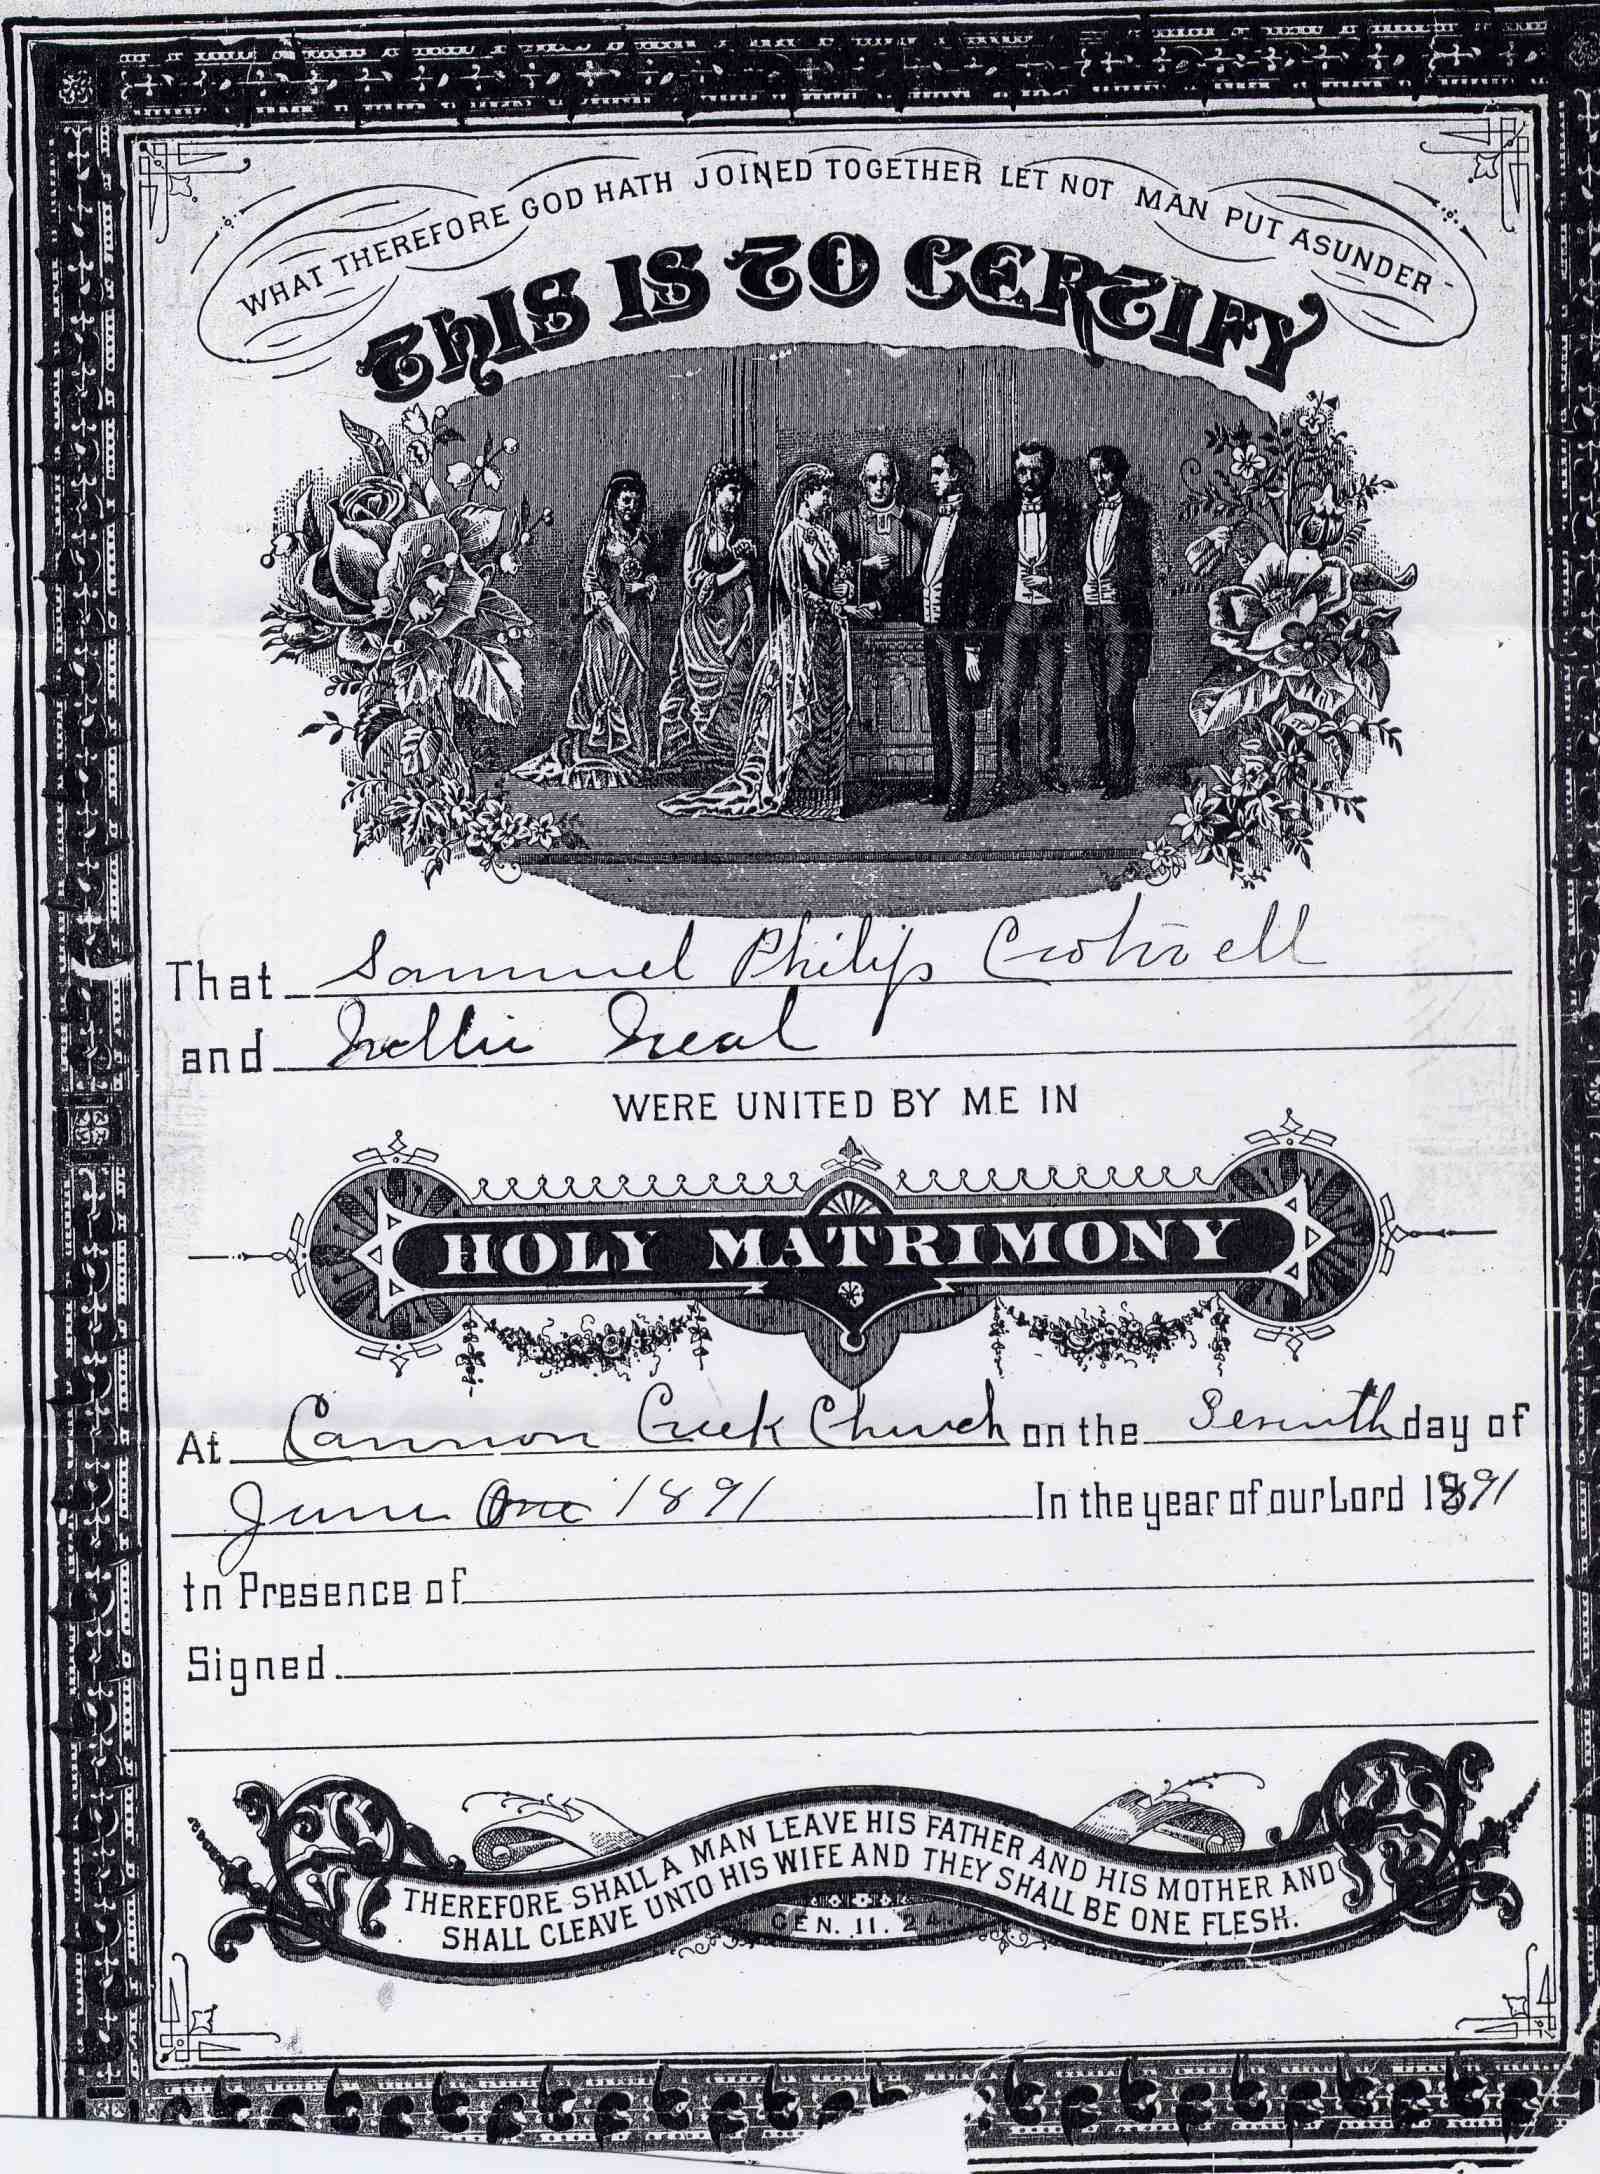 WHAT THEREFORE GOD HATH JOINED TOGETHER LET NOT MAN PUT ASUNDER
THIS IS TO CERTIFY
That Sammuel Philip Crotwell
and Nellie Neal
WERE UNITED BY ME IN
HOLY MATRIMONY
At Cannon Creek Church on the Seventh day of
June One 1891 In the year of our Lord 1891
In Presence of
Signed
THEREFORE SHALL A MAN LEAVE HIS FATHER AND HIS MOTHER AND
SHALL CLEAVE UNTO HIS WIFE AND THEY SHALL BE ONE FLESH.
GEN. II. 24.